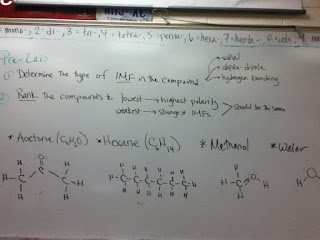 mono-, 2-di-, 3-tri-, 4-tetra-, 5-penta-, 6-hexa-, 7-hepta-, 8-octa-, 9
Pre-Lab
① Determine the type of IMF in the compound
dipole-dipole
hydrogen bonding
Rank the compounds to lowest → highest polarity
weakest → strongest IMFs
should be the same
* Acetone (C₃H₆O) * Hexane (C₆H₁₄) * Methanol * Water
O
H H H H H H H H H
H-C C C-H H-C-C-C-C-C-C-H H-C O H O
H H H H H H H H H